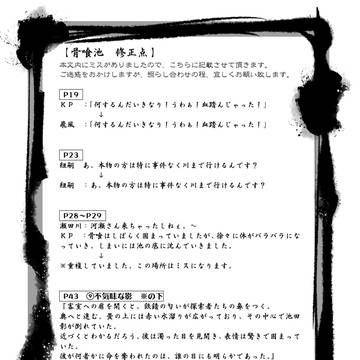 【骨喰池　修正点】
本文内にミスがありましたので、こちらに記載させて頂きます。
ご迷惑をおかけしますが、照らし合わせの程、宜しくお願い致します。
P19
KP　：「何するんだいきなり！うわぁ！血踏んじゃった！」
↓
颪風　：「何するんだいきなり！うわぁ！血踏んじゃった！」
P23
紐嗣　あ、本物の方は特に事件なく川まで行けるんです？
↓
紐嗣　あ、本物の方は特に事件なく川まで行けるんです？
P28～P29
瀬田川：河瀬さん来ちゃったしねぇ。～
KP　：骨喰はしばらく固まっていましたが、徐々に体がバラバラにな
っていき、しまいには池の底に沈んでいきました。
↓
※重複していました。この場所はミスになります。
P43　⑨不気味な影　※の下
『客室への扉を開くと、鉄錆の匂いが探索者たちの鼻をつく。
奥へと進む。畳の上には赤い水溜りが広がっており、その中心で池田
影が倒れていた。
近づくとわかるだろう。彼は濁った目を見開き、表情は驚きで固まって
いた。
彼が何者かに命を奪われたのは、誰の目にも明らかであった。』